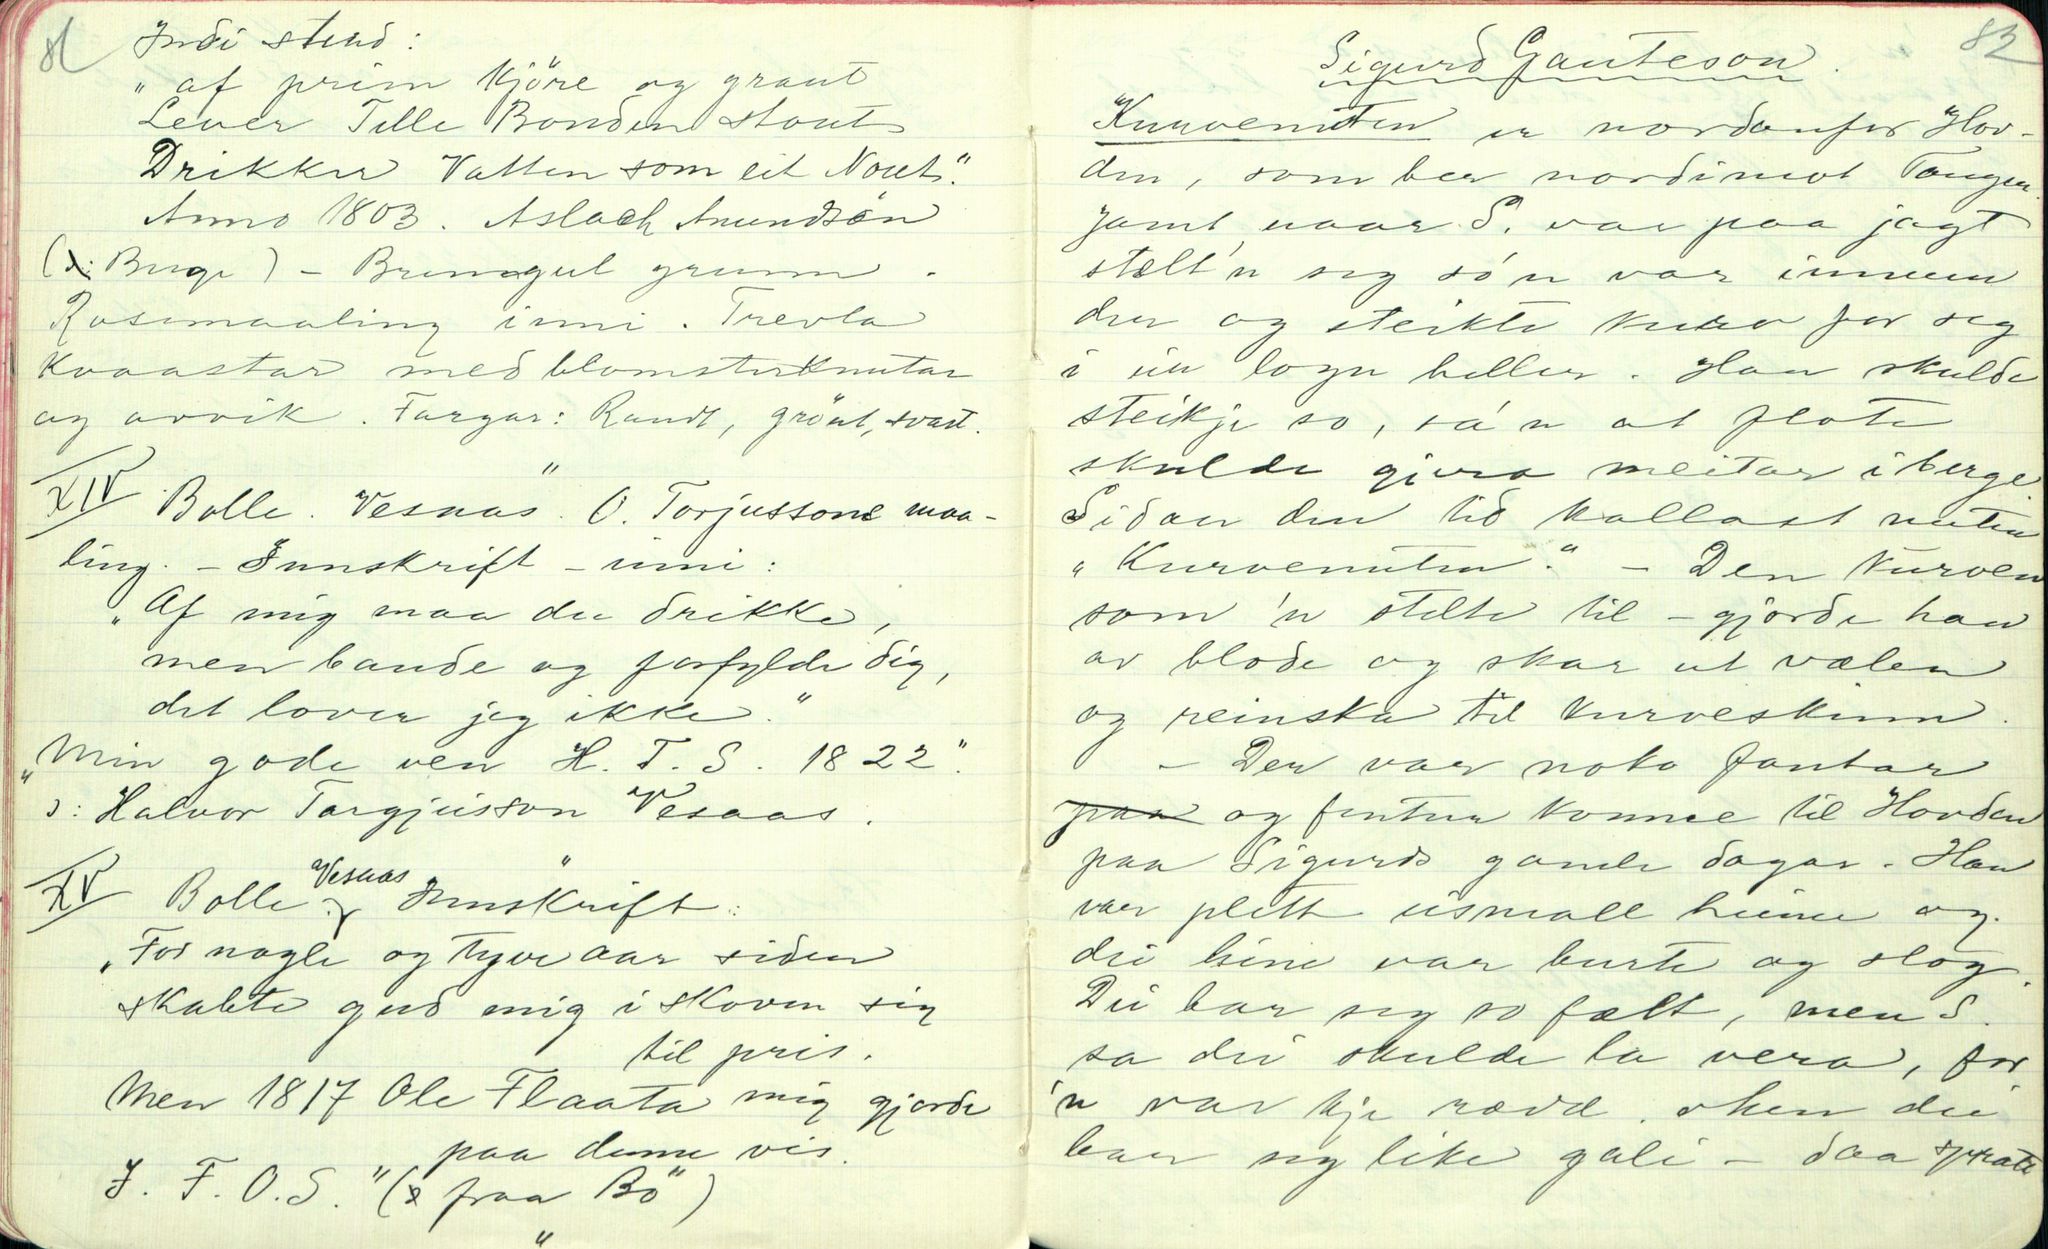 81
Indi stend:
"af prim Kjöre og graut
Lever Telle Bonden stout
Drikker Vatten som eit Nout."
Anno 1803. Aslach Amundsön
(ɔ: Buge) - Brungul grunn.
Rosemaaling inni. Trevla
kvaastar med blomsterknutar
og orvik. Fargar: Raudt, grönt, svart.
"
XIV Bolle. Vesaas. O. Torjussons maa-
ling. - Innskrift - inni:
"Af mig maa du drikke,
men bande og forfylde dig,
det lover jeg ikke."
"Min gode ven H. T. S. 1822".
ɔ: Halvor Targjusson Vesaas.
"
XV Bolle. Vesaas Innskrift:
"For nogle og tyve aar siden
skabte gud mig i skoven sig
til pris.
Men 1817 Ole Flaata mig gjorde
paa denne vis.
J. F. O. S." (ɔ fraa Bö)
"
82
Sigurd Gauteson.
Kurvenuten er nordanfor Hov-
den, som ber nordimot Tangen.
Jamt naar S. var paa jagt
stelt'n seg so'n var innum
der og steikte kurv for seg
i ein logn heller. Han skulde
steikje so, sa'n at flote
skulde gjera meitar i berge.
Sidan den tid kallast nuten
"Kurvenuten". - Den kurven
som 'n stelte til - gjorde han
av blode og skar ut vælen
og reinska til kurveskinn.
- Der var noko fantar
paa og fentur komne til Hovden
paa Sigurds gamle dagar. Han
var plett eismall heime og
dei hine var burte og slog.
Dei bar seg so fælt, men S.
sa dei skulde la vera, for
'n var kje rædd. Men dei
bar seg like gali - daa spratt